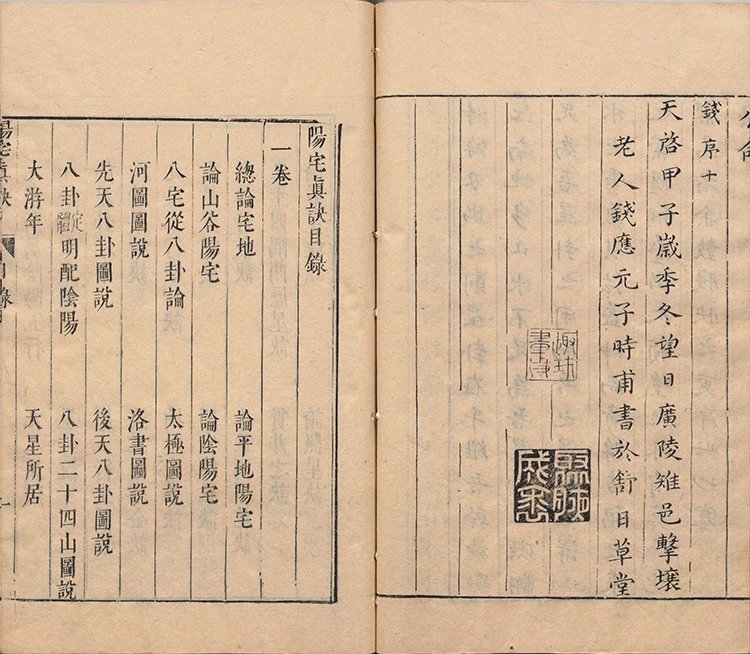 錢序十
天啓甲子嵗季冬望日廣陵雉邑擊壤
老人錢應元子時甫書於舒日草堂
陽宅眞訣目錄
一卷
總論宅地　論平地陽宅
論山谷陽宅　論陰陽宅
八宅從八卦論　太極圖説
河圖圖説　洛書圖説
先天八卦圖説　後天八卦圖説
八卦定體明配陰陽　八卦二十四山圖説
大游年　天星所居
陽宅眞訣　目錄　一